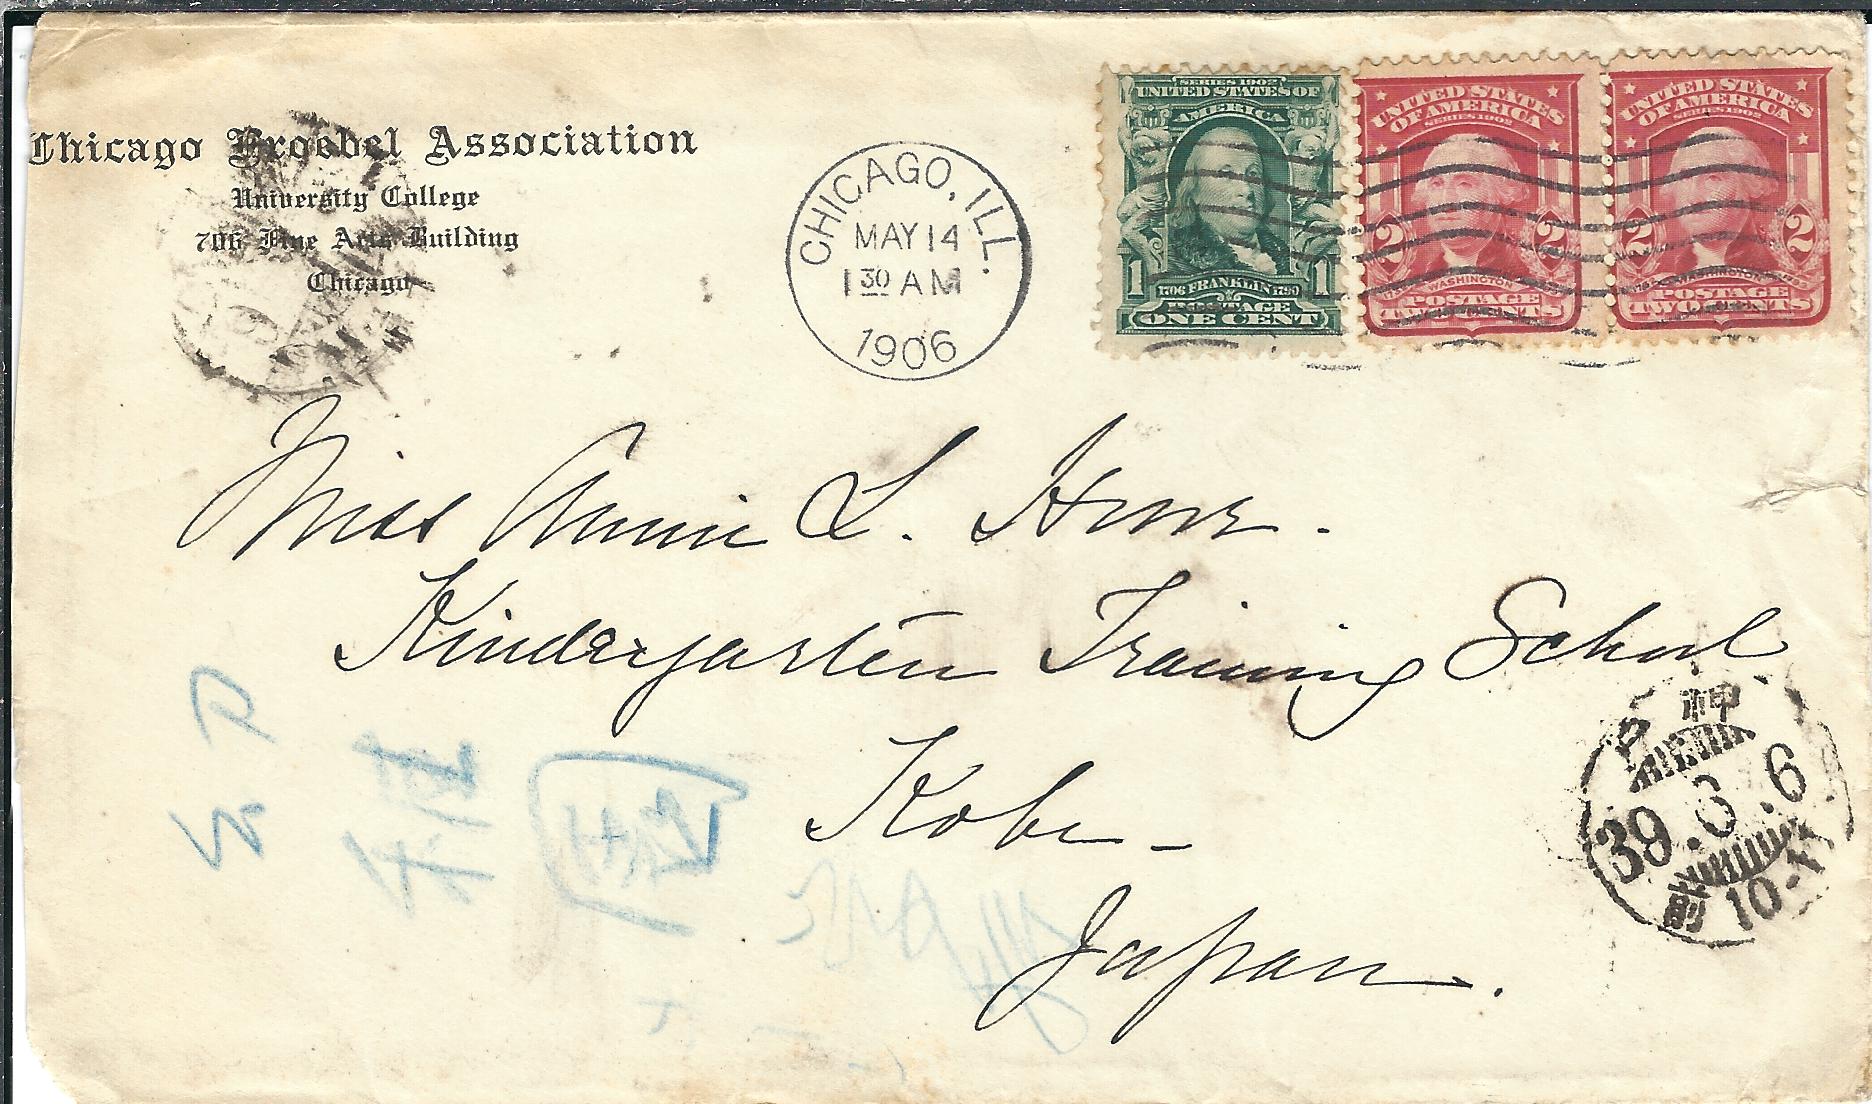 Chicago Froebel Association
University College
706 Fine Arts Building
Chicago
CHICAGO, ILL.
MAY 14
1 30 AM
1906
SERIES 1902
UNITED STATES OF
AMERICA
1 1
1706 FRANKLIN 1790
POSTAGE
ONE CENT
UNITED STATES
OF AMERICA
SERIES 1902
2 2
WASHINGTON
POSTAGE
TWO CENTS
UNITED STATES
OF AMERICA
SERIES 1902
2 2
WASHINGTON
POSTAGE
TWO CENTS
Miss Annie L. Howe.
Kindergarten Training School
Kobe -
Japan.
神戸
39.6.6
前 10-11